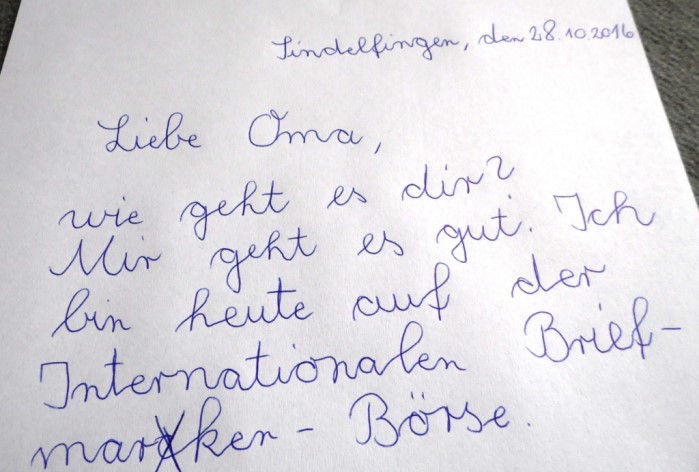 Sindelfingen, den 28.10.2016
Liebe Oma,
wie geht es dir?
Mir geht es gut. Ich
bin heute auf der
Internationalen Brief-
marken - Börse.